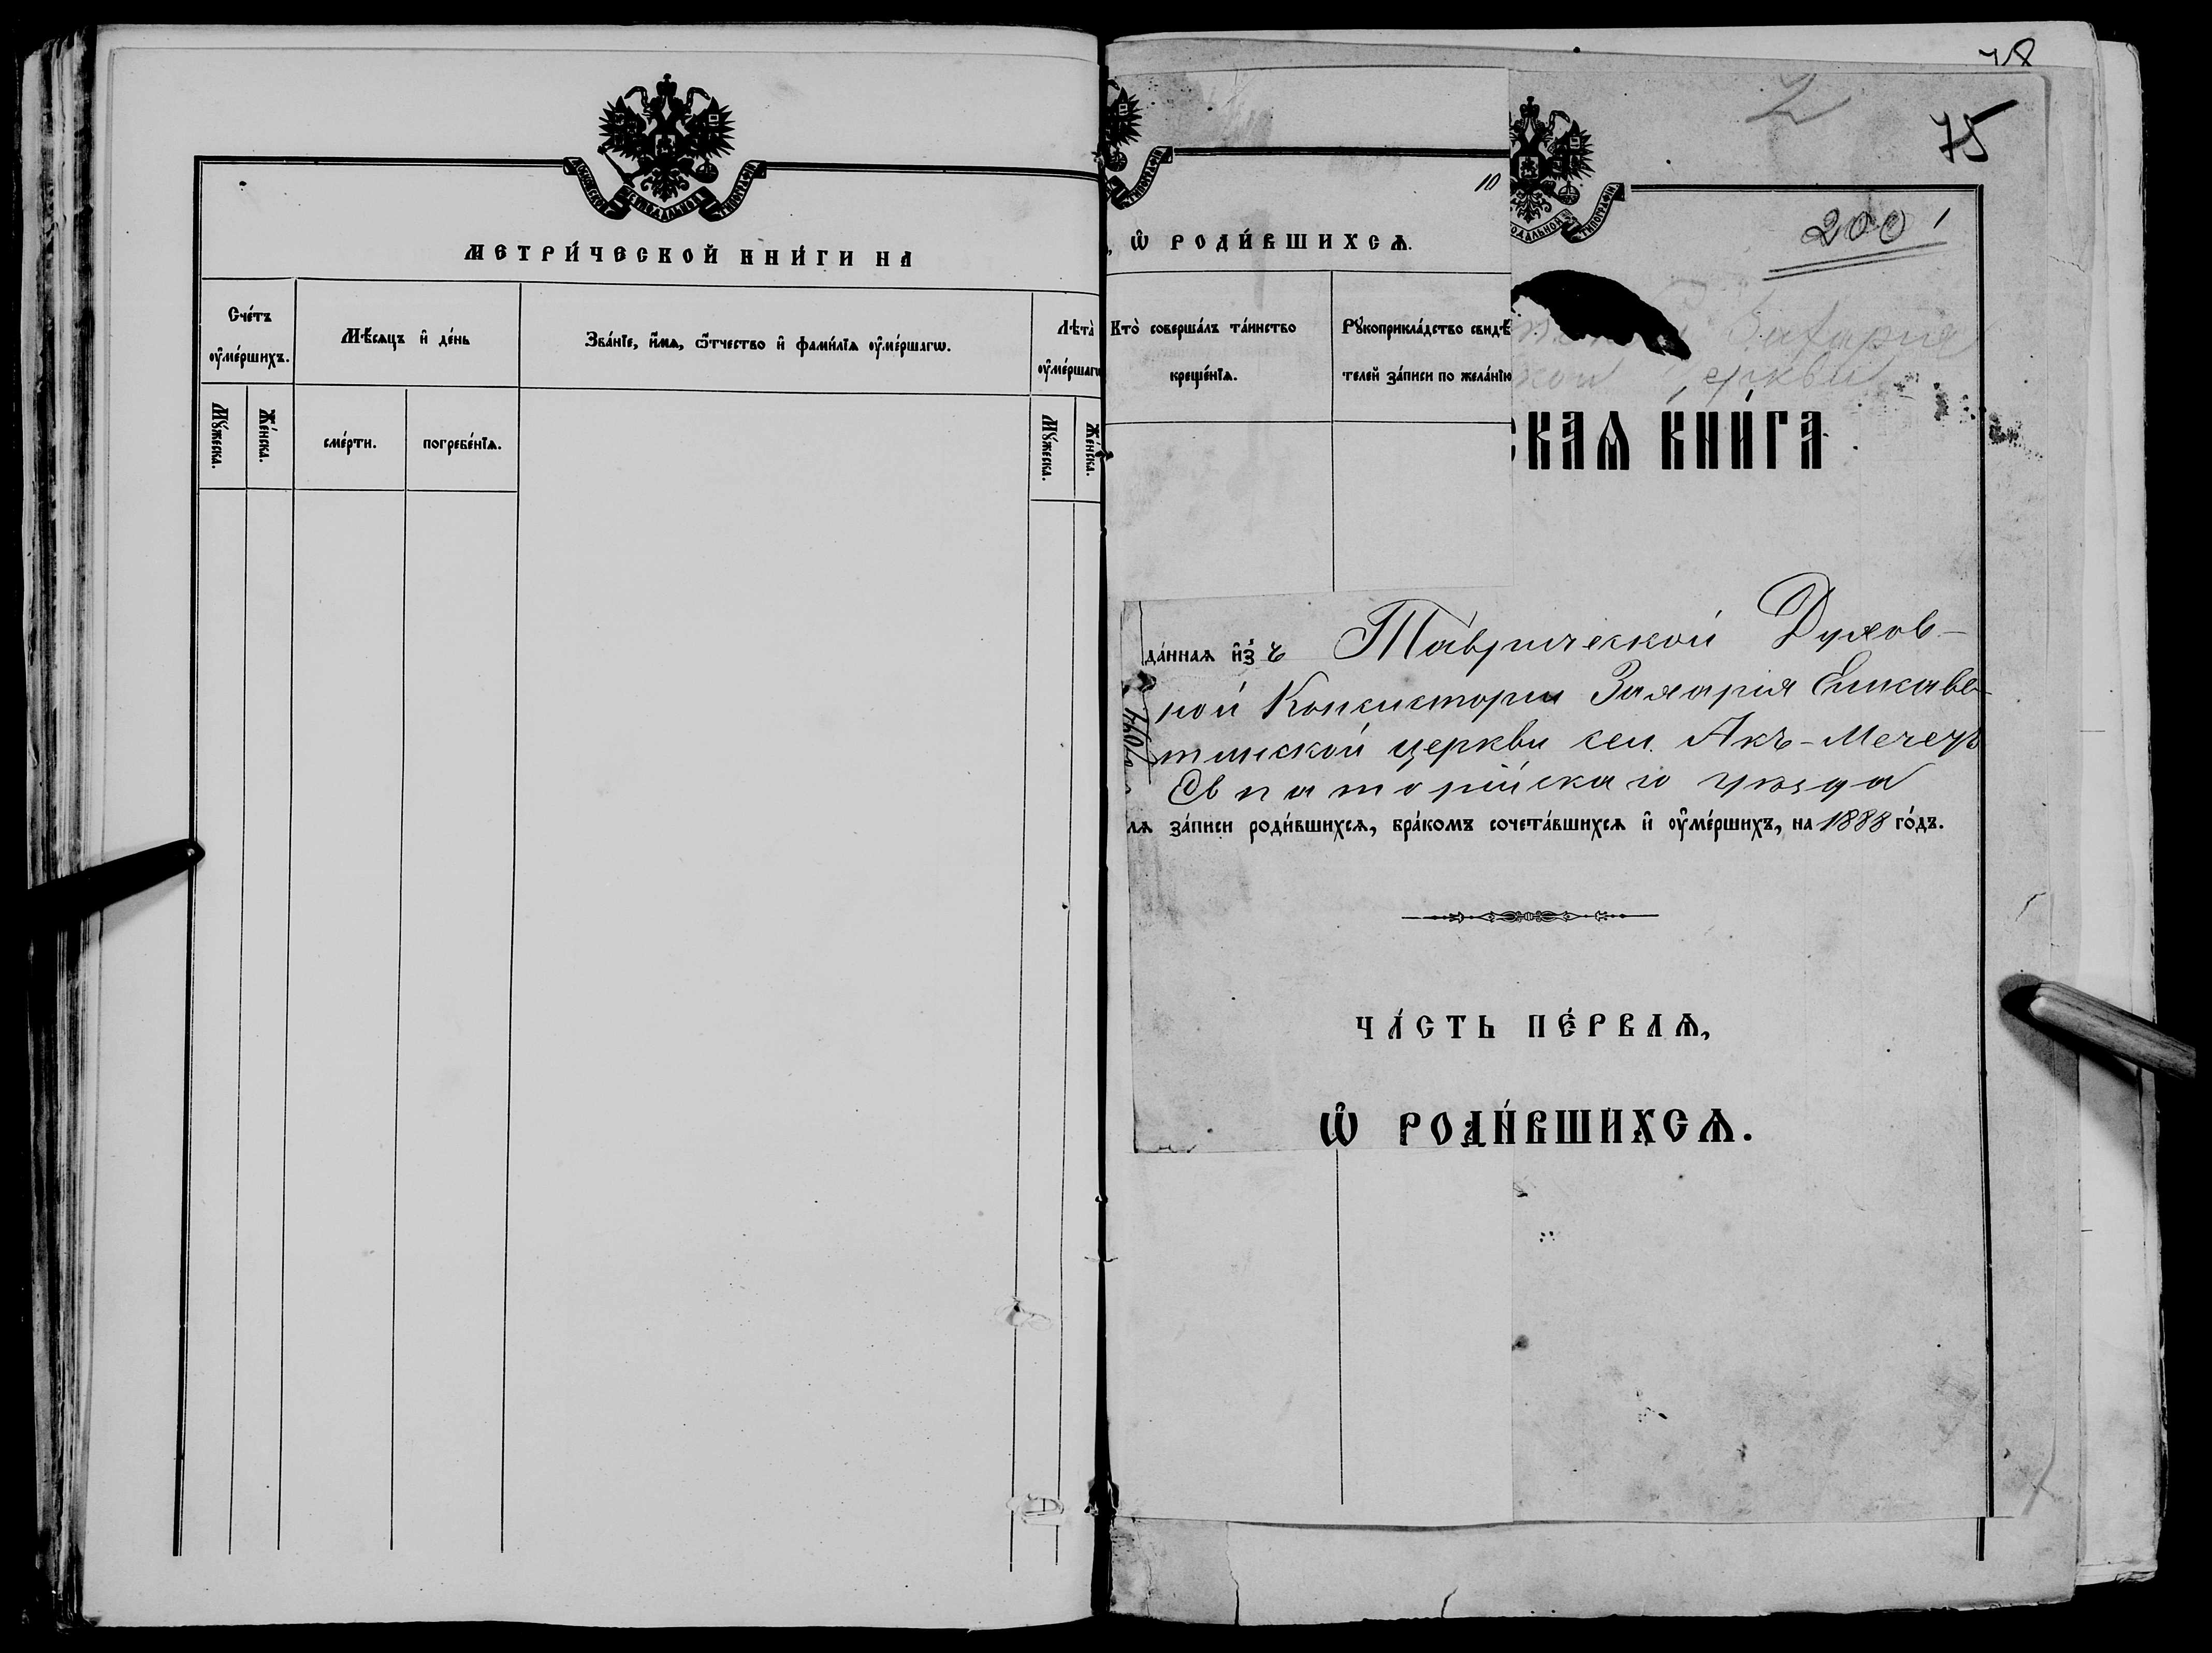 МЕТРИ́ЧЕСКОЙ КНИ́ГИ НА
Сче́тъ
ᲂу҆ме́ршихъ.
Мѣ́сяцъ и҆ де́нь
Зва́нїе, и҆́мѧ, ѻ҆́тчество и҆ фами́лїѧ ᲂу҆ме́ршагѡ.
Лѣта̀
ᲂу҆ме́ршагѡ
Му́жеска.
Же́нска.
сме́рти.
погребе́нїѧ.
Му́жеска.
Же́нска.
75
10
200
Ѡ҆ РОДИ́ВШИХСѦ.
Кто̀ соверша́лъ та́инство
креще́нїѧ.
Рꙋкоприкла́дство свидѣ́
телей за́писи по жела́нїю
Захарія
церкви
СКАѦ КНИ́ГА
да́ннаѧ и҆зъ Таврической Духов-
ной Консисторіи Захарія Елисаве-
тинской церкви сел. Акъ-Мечеть
Евпаторійскаго уѣзда
лѧ за́писи роди́вшихсѧ, бра́комъ сочета́вшихсѧ и҆ ᲂу҆ме́ршихъ, на 1888 го́дъ.
ЧА́СТЬ ПЕ́РВАѦ,
Ѡ҆ РОДИ́ВШИХСѦ.